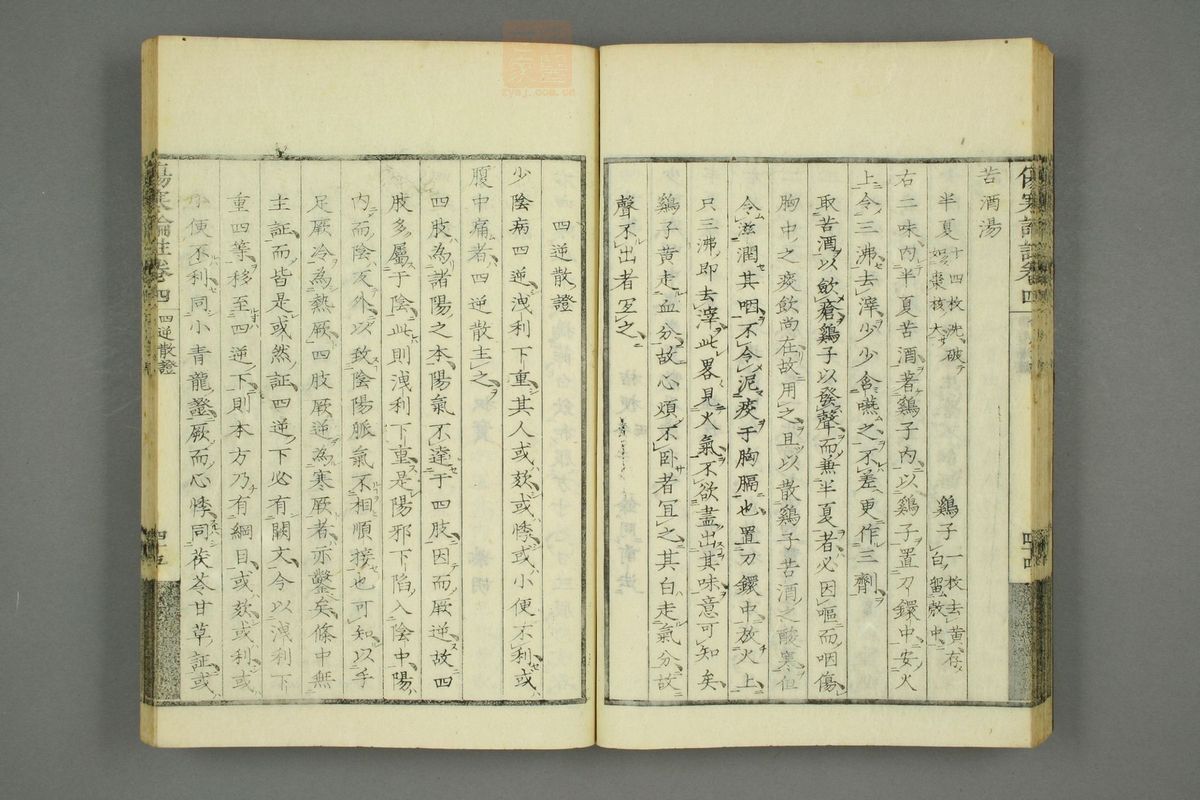 苦酒湯
半夏十四枚洗破如棗核大 鷄子一枚去黃存白留殼中
右二味內半夏苦酒著鷄子內以鷄子置刀鐶中安火
上令三沸去滓少少含嚥之不差更作三劑
取苦酒以斂瘡鷄子以發聲而兼半夏者必因嘔而咽傷
胸中之痰飲尚在故用之且以散鷄子苦酒之酸寒但
令滋潤其咽不令泥痰于胸膈也置刀鐶中放火上
只三沸即去滓此畧見火氣不欲盡出其味意可知矣
鷄子黃走血分故心煩不卧者宜之其白走氣分故
聲不出者宜之
傷寒論註卷四
四十四
四逆散證
少陰病四逆洩利下重其人或欬或悸或小便不利或
腹中痛者四逆散主之
四肢為諸陽之本陽氣不達于四肢因而厥逆故四
肢多屬于陰此則洩利下重是陽邪下陷入陰中陽
內而陰反外以致陰陽脈氣不相順接也可知以手
足厥冷為熱厥四肢厥逆為寒厥者亦鑿矣條中無
主証而皆是或然証四逆下必有闕文今以洩利下
重四等移至四逆下則本方乃有綱目或欬或利或
小便不利同小青龍證厥而心悸同茯苓甘草証或
傷寒論註卷四 四逆散證
四十五
zysj.com.cn